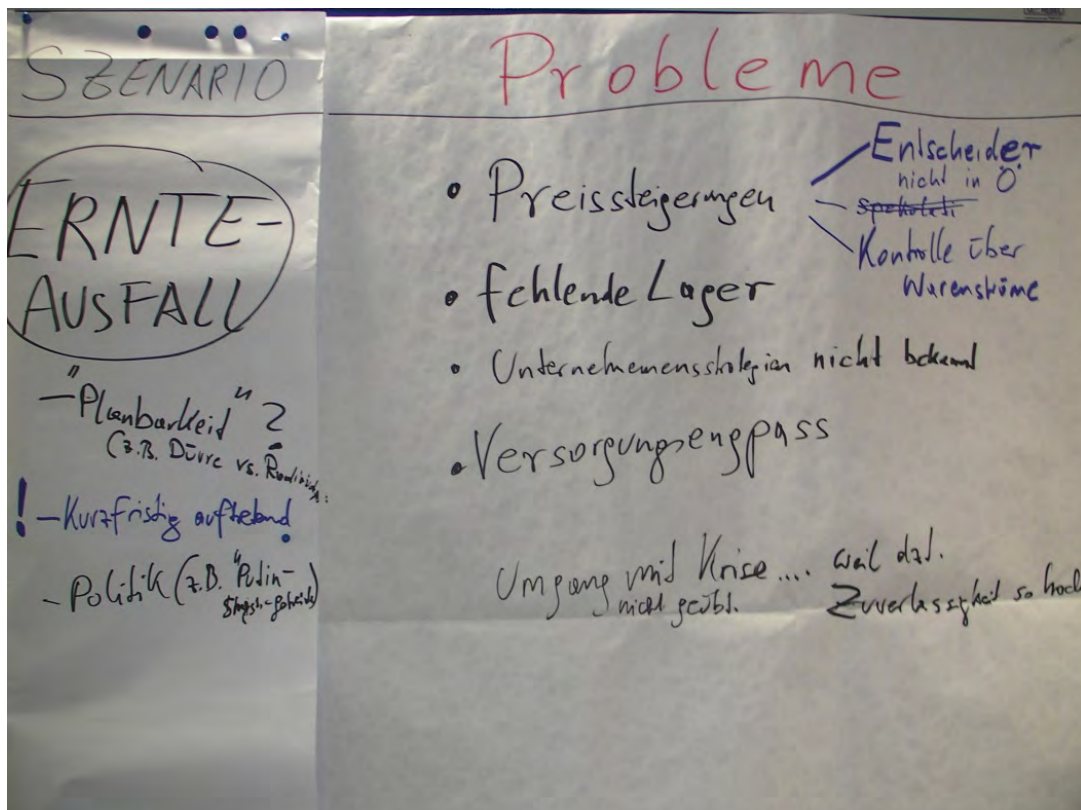 SZENARIO
ERNTE-
AUSFALL
- "Planbarkeid" ?
(z.B. Dürre vs.
! - Kurzfristig auftretend
- Politik (z.B. "Putin-
Probleme
• Preissteigerungen
Entscheider
nicht in Ö
Kontrolle über
Warenströme
• fehlende Lager
• Unternehmensstrategien nicht bekannt
• Versorgungsengpass
Umgang mit Krise.... weil dzt.
nicht geübt. Zuverlässigkeit so hoch